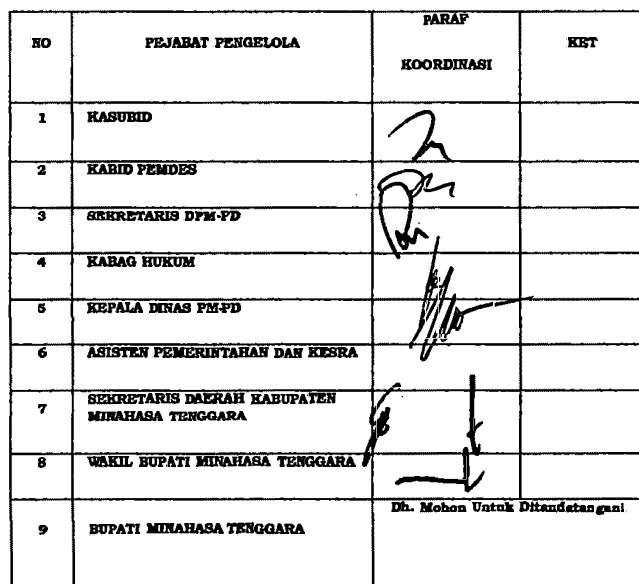 NO PEJABAT PENGELOLA PARAF KOORDINASI KET
1 KASUBID
2 KABID PEMDES
3 SEKRETARIS DPM-PD
4 KABAG HUKUM
5 KEPALA DINAS PM-PD
6 ASISTEN PEMERINTAHAN DAN KESRA
7 SEKRETARIS DAERAH KABUPATEN
MINAHASA TENGGARA
8 WAKIL BUPATI MINAHASA TENGGARA
Dh. Mohon Untuk Ditandatangani
9 BUPATI MINAHASA TENGGARA